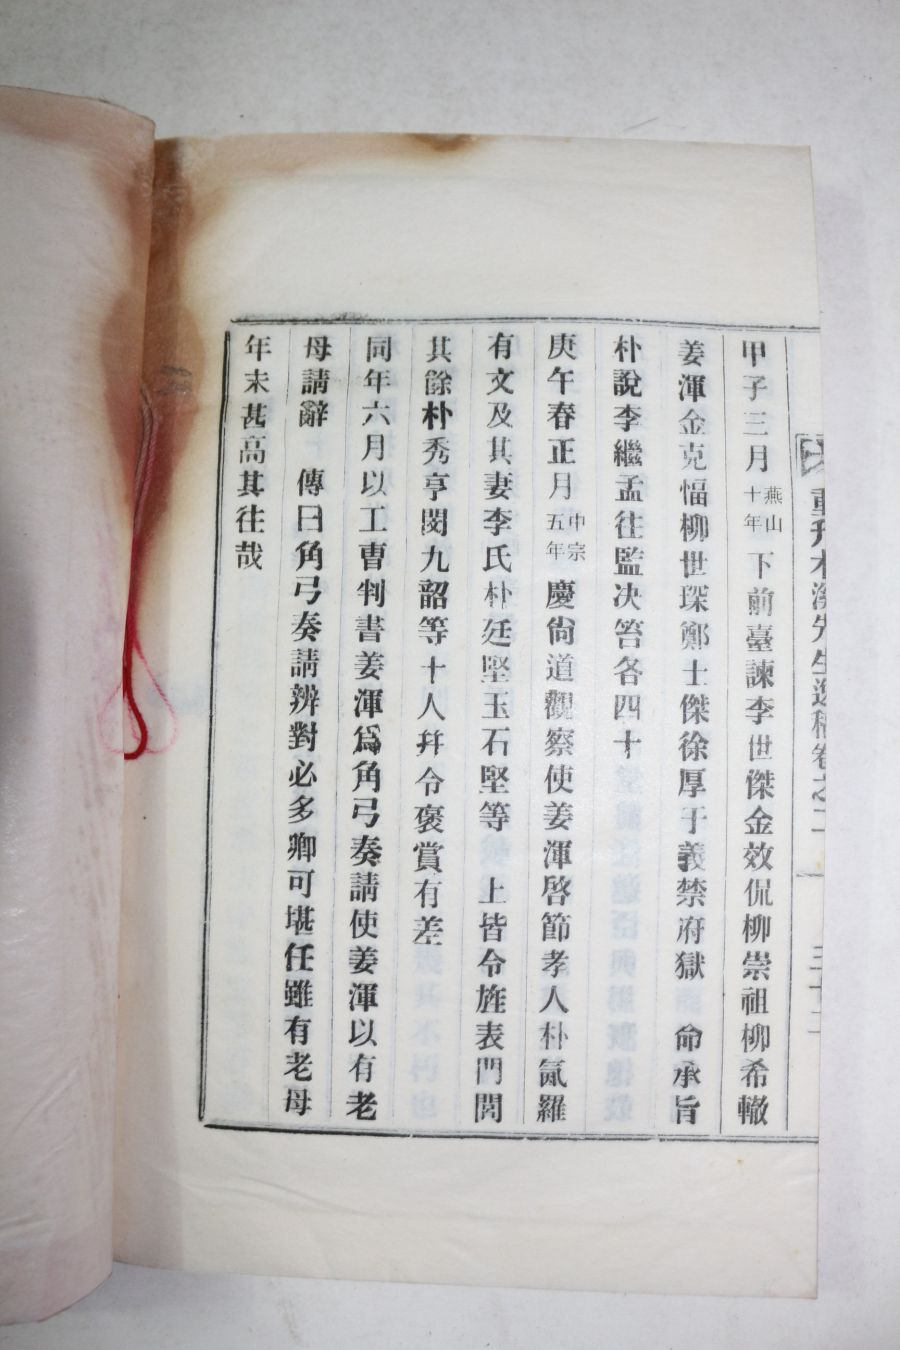 重刊木溪先生逸稿卷之二 三十二
甲子三月燕山十年下前臺諫李世傑金效侃柳崇祖柳希轍
姜渾金克愊柳世琛鄭士傑徐厚于義禁府獄 命承旨
朴說李繼孟往監決笞各四十
庚午春正月中宗五年慶尙道觀察使姜渾啓節孝人朴氤羅
有文及其妻李氏朴廷堅玉石堅等 上皆令旌表門閭
其餘朴秀亨閔九韶等十人幷令褒賞有差
同年六月以工曹判書姜渾爲角弓奏請使姜渾以有老
母請辭 傳曰角弓奏請辨對必多卿可堪任雖有老母
年未甚高其往哉